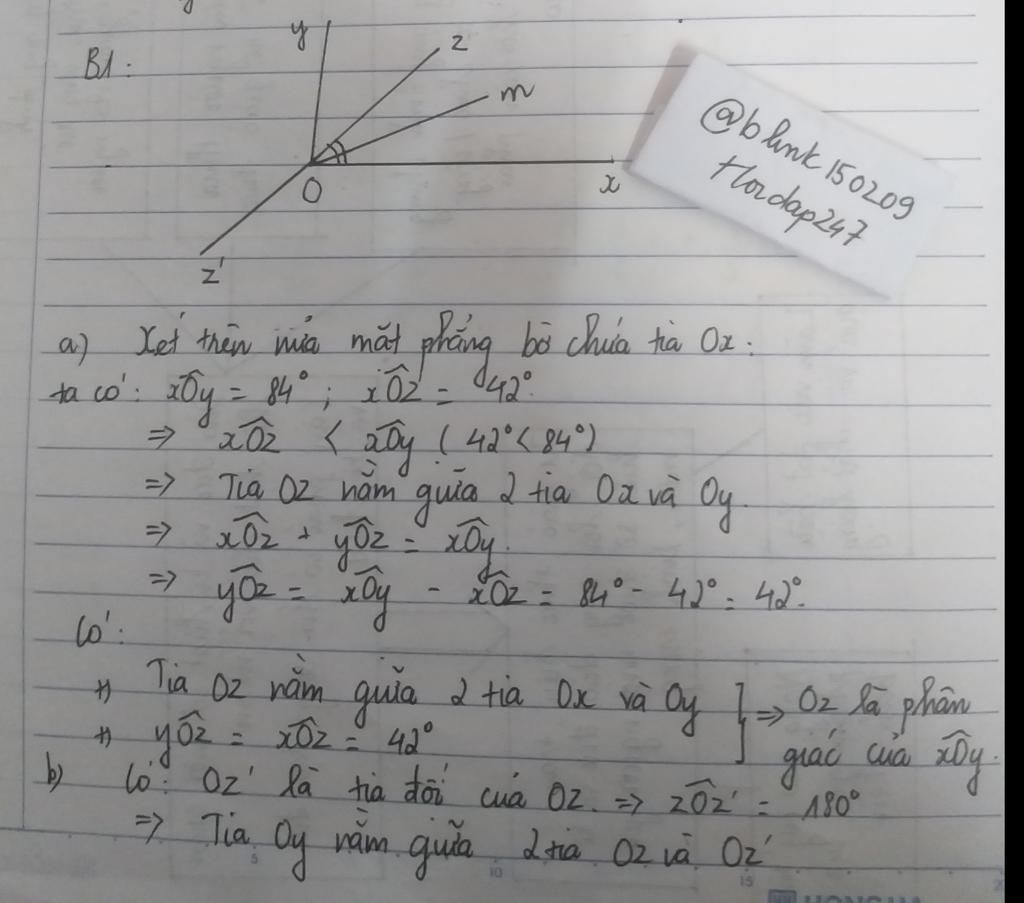 B1:
y
z
m
O
x
z'
@blink150209
Hoidap247
a) Xét trên nửa mặt phẳng bờ chứa tia Ox:
ta có: xÔy = 84°; xÔz = 42°.
=> xÔz < xÔy (42° < 84°)
=> Tia Oz nằm giữa 2 tia Ox và Oy.
=> xÔz + yÔz = xÔy.
=> yÔz = xÔy - xÔz = 84° - 42° = 42°.
Có:
+) Tia Oz nằm giữa 2 tia Ox và Oy
+) yÔz = xÔz = 42°
=> Oz là phân
giác của xÔy.
b) Có: Oz' là tia đối của Oz. => zÔz' = 180°
=> Tia Oy nằm giữa 2 tia Oz và Oz'
5
10
15